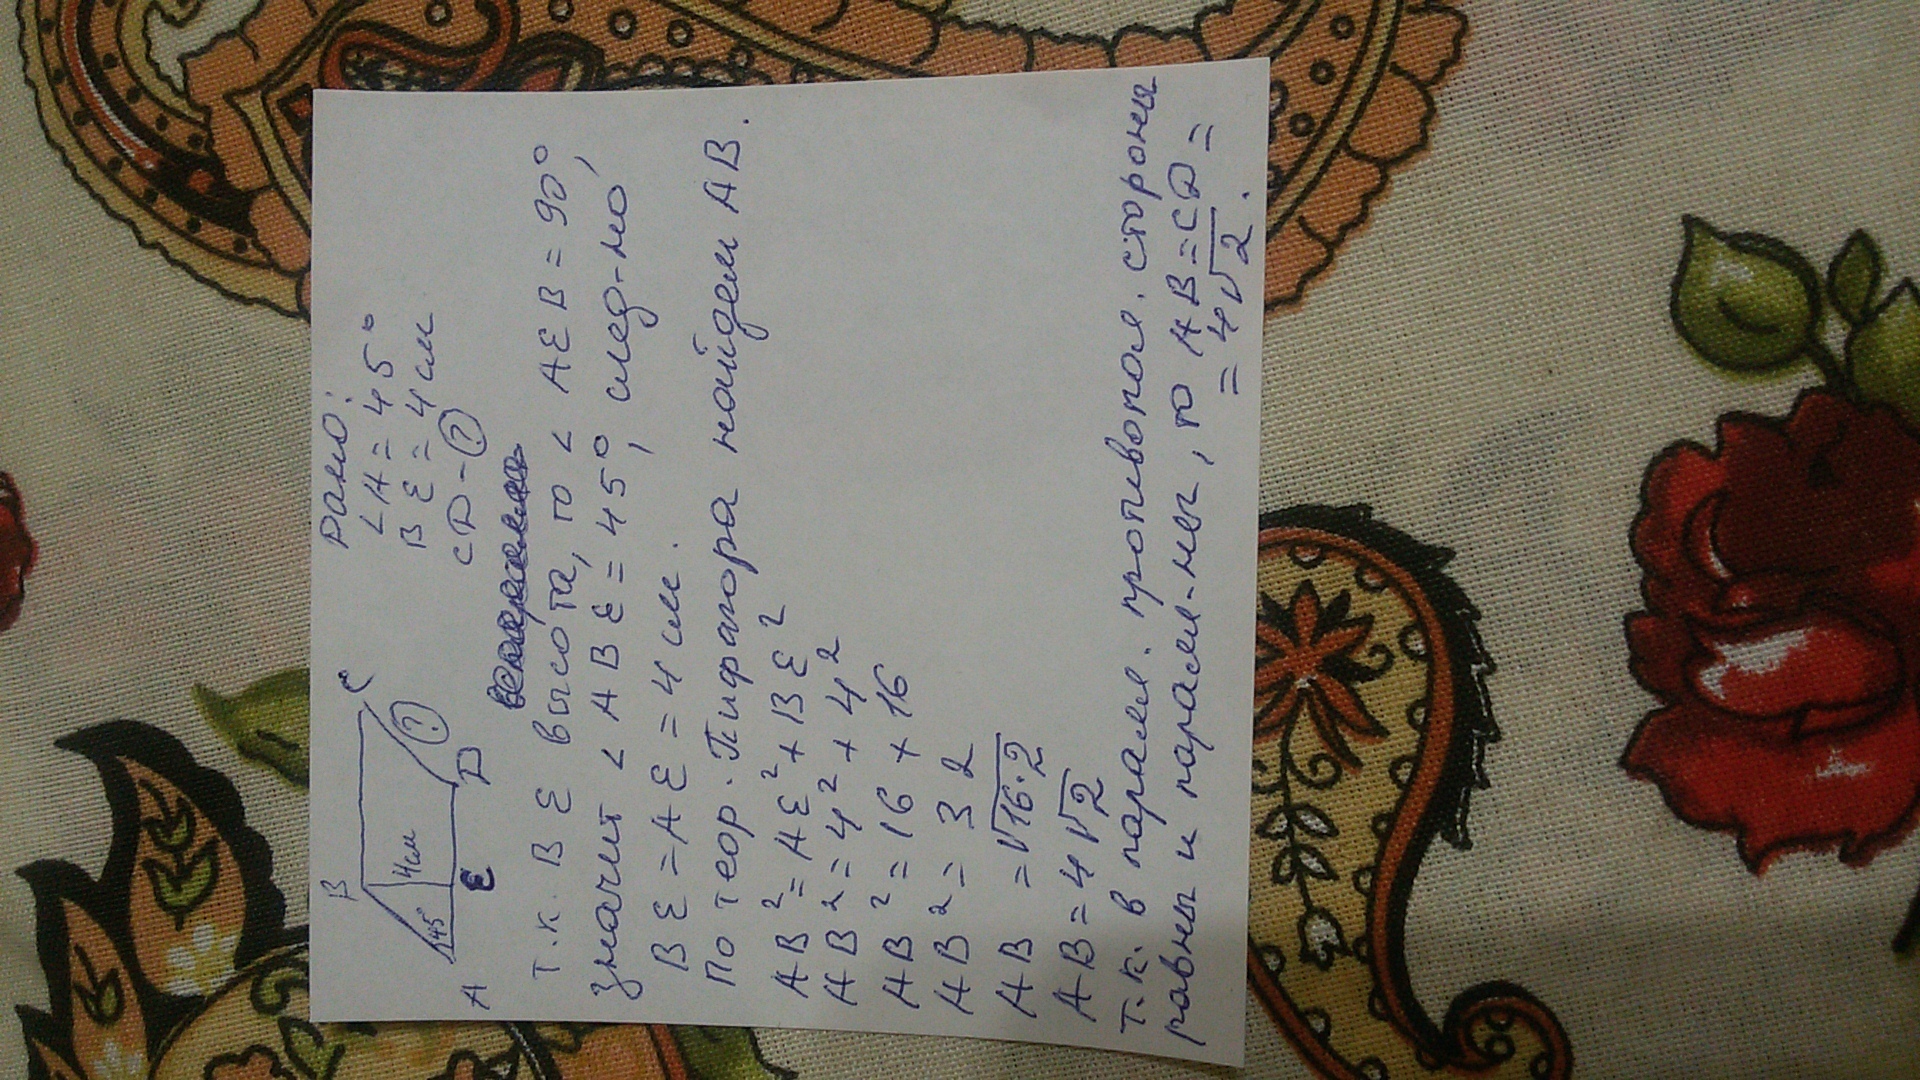 Дано:
∠A = 45°
BE = 4 см
CD - ?
B
C
4 см
45°
?
A
E
D
т.к. BE высота, то ∠ AEB = 90°,
значит ∠ ABE = 45°, след-но,
BE = AE = 4 см.
По теор. Пифагора найдем AB.
AB² = AE² + BE²
AB² = 4² + 4²
AB² = 16 + 16
AB² = 32
AB = √16·2
AB = 4√2
т.к. в парал. противопол. стороны
равны и парал-ны, то AB = CD =
= 4√2.